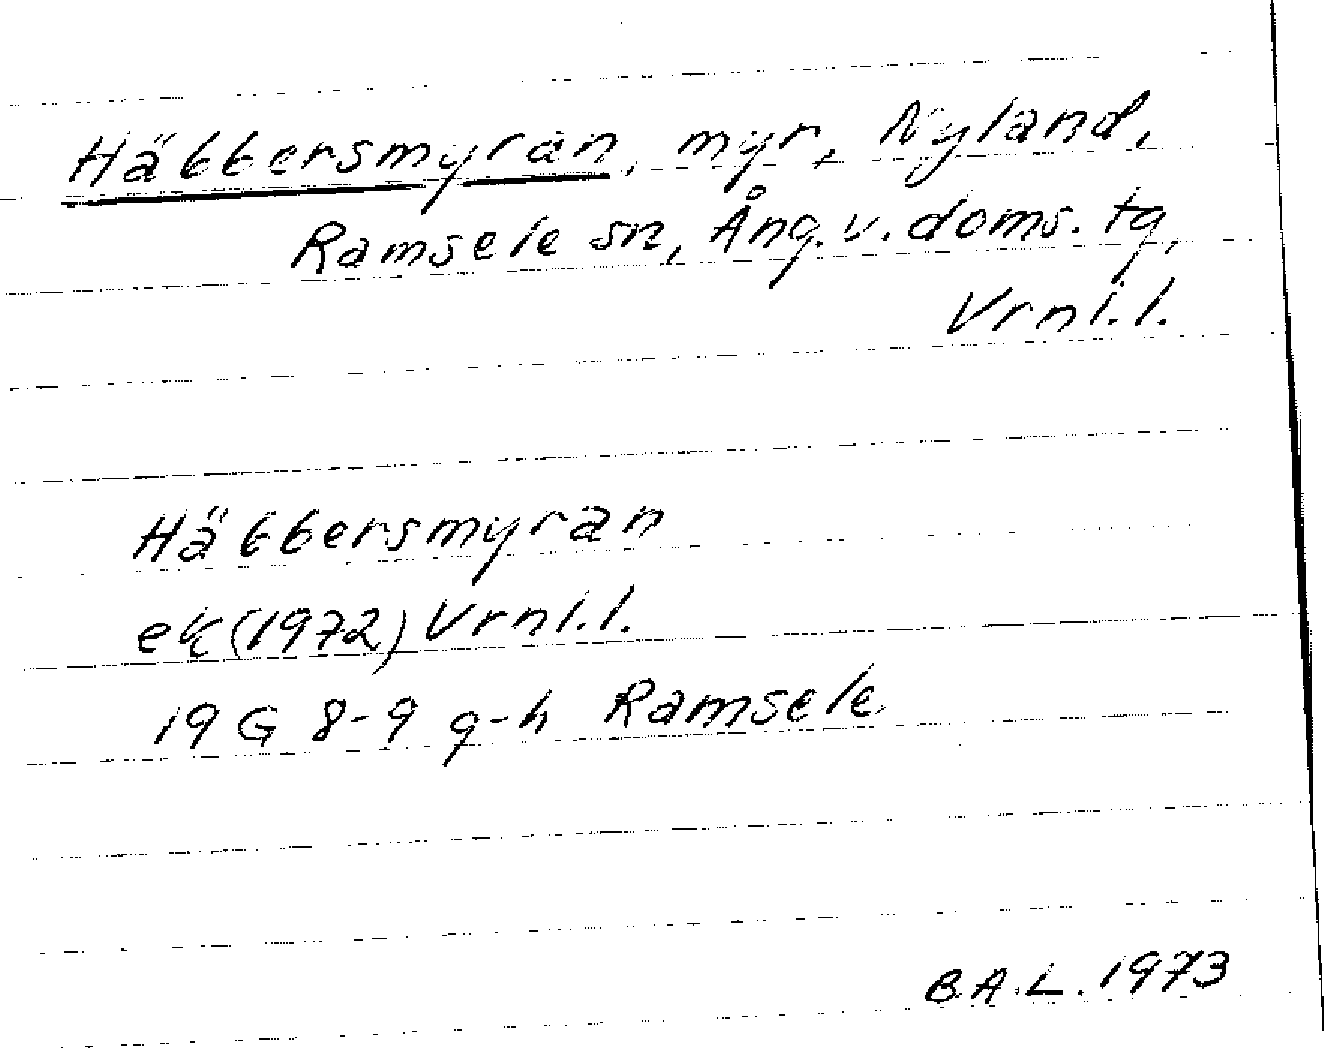 Häbbersmyran, myr, Nyland,
Ramsele sn, Ång. v. doms. tg,
Vrnl.l.
Häbbersmyran
ek (1972) Vrnl.l.
19 G 8-9 g-h Ramsele
B.A.L. 1973